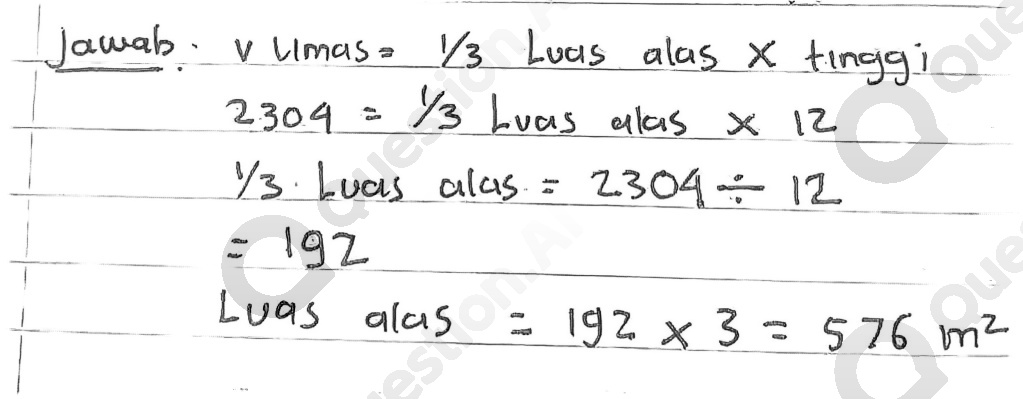 Jawab. V Limas = 1/3 Luas alas x tinggi
2304 = 1/3 Luas alas x 12
1/3. Luas alas. = 2304 ÷ 12
= 192
Luas alas = 192 x 3 = 576 m²